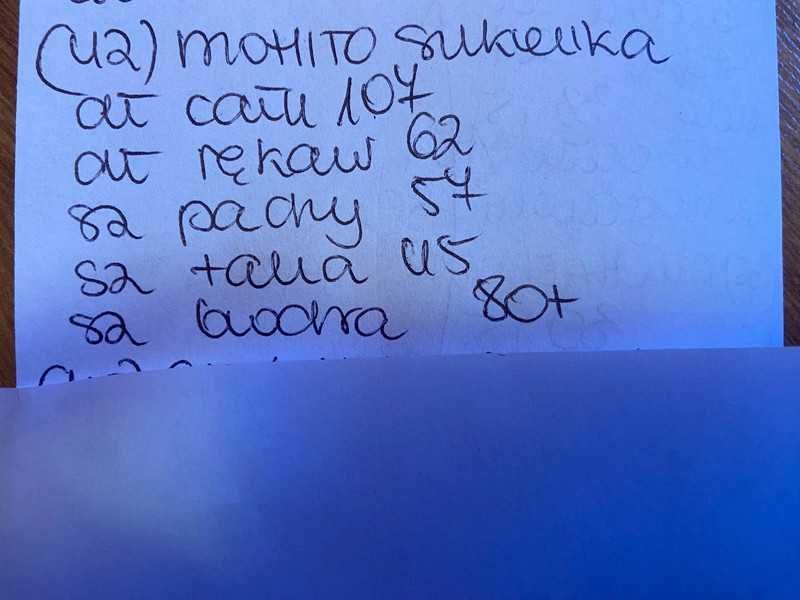 (42) MOHITO sukienka
dł całk 107
dł rękaw 62
sz pachy 57
sz talia 45
sz biodra 80+